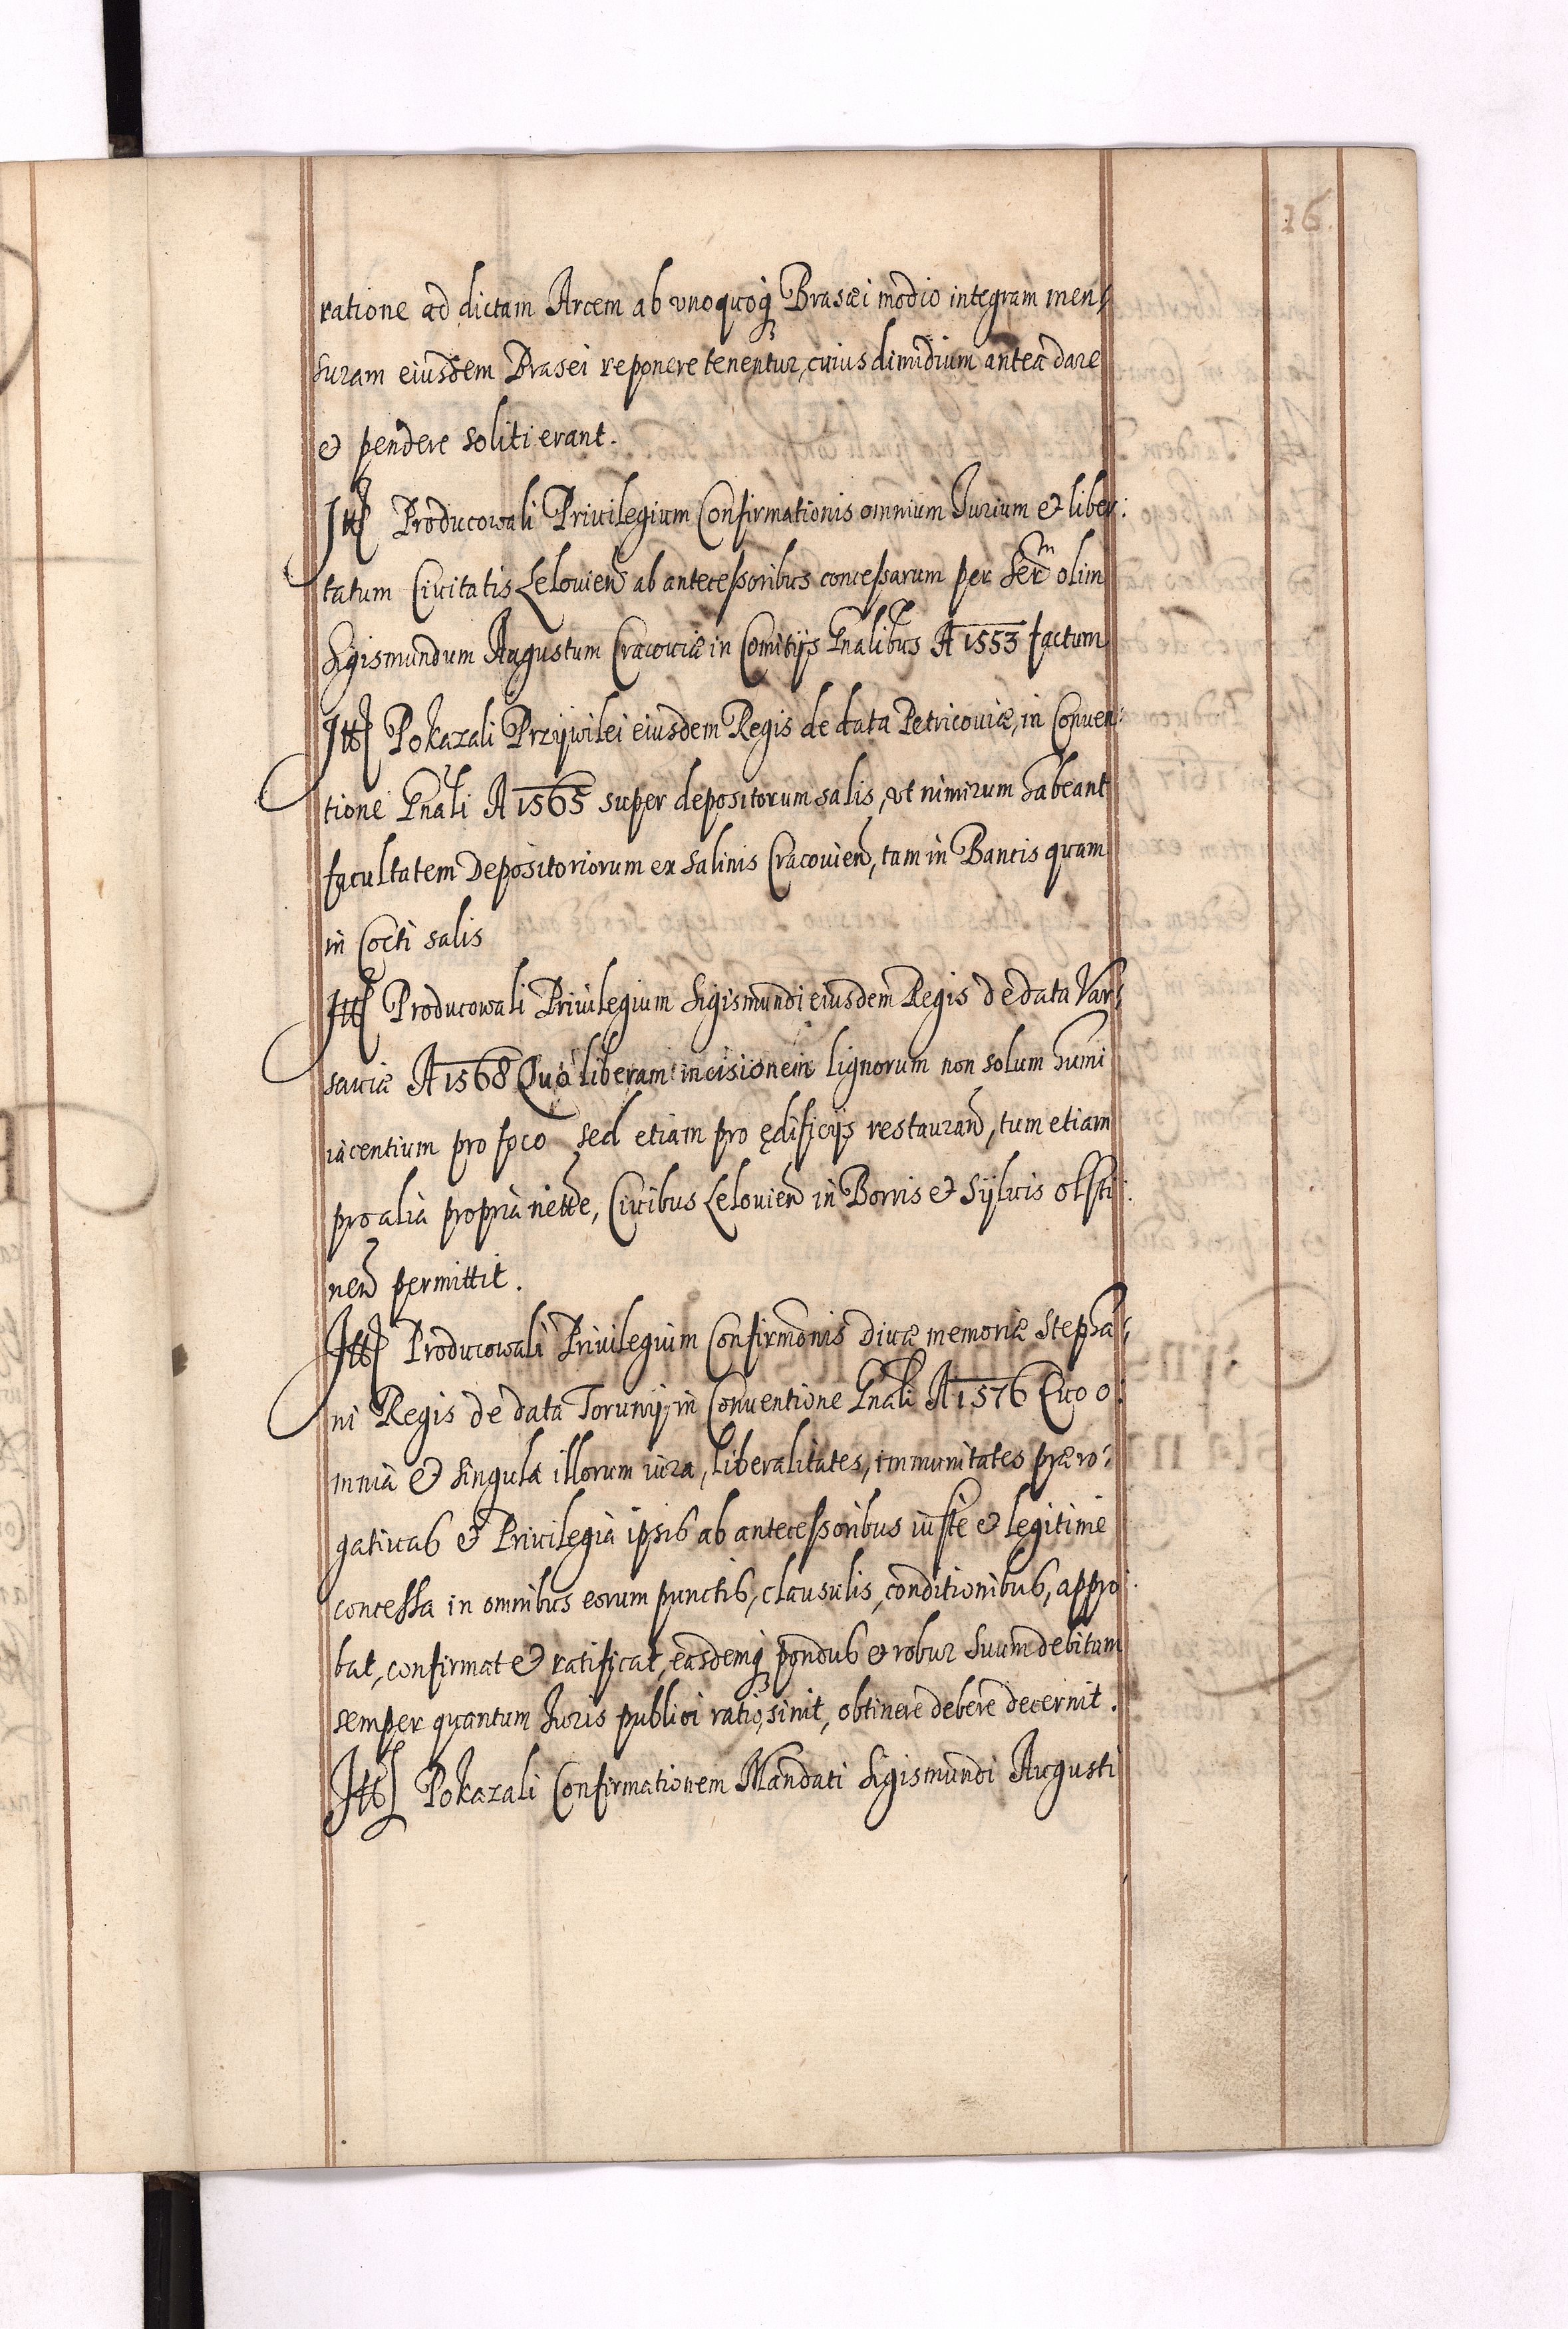 26.
ratione ad dictam Arcem ab vnoquoq; Brasæi modio integram men:
suram eiusdem Brasei reponere tenentur, cuius dimidium anteà dare
et pendere soliti erant.
Itē Producowali Priuilegium Confirmationis omnium Iurium et liber:
tatum Ciuitatis Leloвień ab antecessoribus concessarum per Ser̃m olim
Sigismundum Augustum Cracouiæ in Comitijs Gnalibus A 1553 factum
Itē Pokazali Przywilei eiusdem Regis de data Petricouiæ, in Conuen:
tione Gnali A 1565 super depositorum salis, vt nimirum habeant
facultatem Depositoriorum ex Salinis Cracouień, tam in Bancis quam
in Cocti salis
Itē Producowali Priuilegium Sigismundi eiusdem Regis de data Var:
sauiæ A 1568 Quò liberam incisionem lignorum non solum humi
iacentium pro foco sed etiam pro ędificijs restaurań, tum etiam
pro alia propria neטte, Ciuibus Lelouień in Borris et Syluis Olsti:
neń permittit.
Itē Producowali Priuilegium Confirmonis diuæ memoriæ Stepha:
ni Regis de data Torunij in Conuentione Gnali A 1576 Quo o:
mnia et singula illorum iura, liberalitates, immunitates prærо:
gatiuas et Priuilegia ipsis ab antecessoribus iuste et legitime
concessa in omnibus eorum punctis, clausulis, conditionibus, appro:
bat, confirmat et ratificat, easdemq; pondus et robur suum debitum
semper quantum Iuris publici ratio sinit, obtinere debere decernit.
Itē Pokazali Confirmationem Mandati Sigismundi Augusti